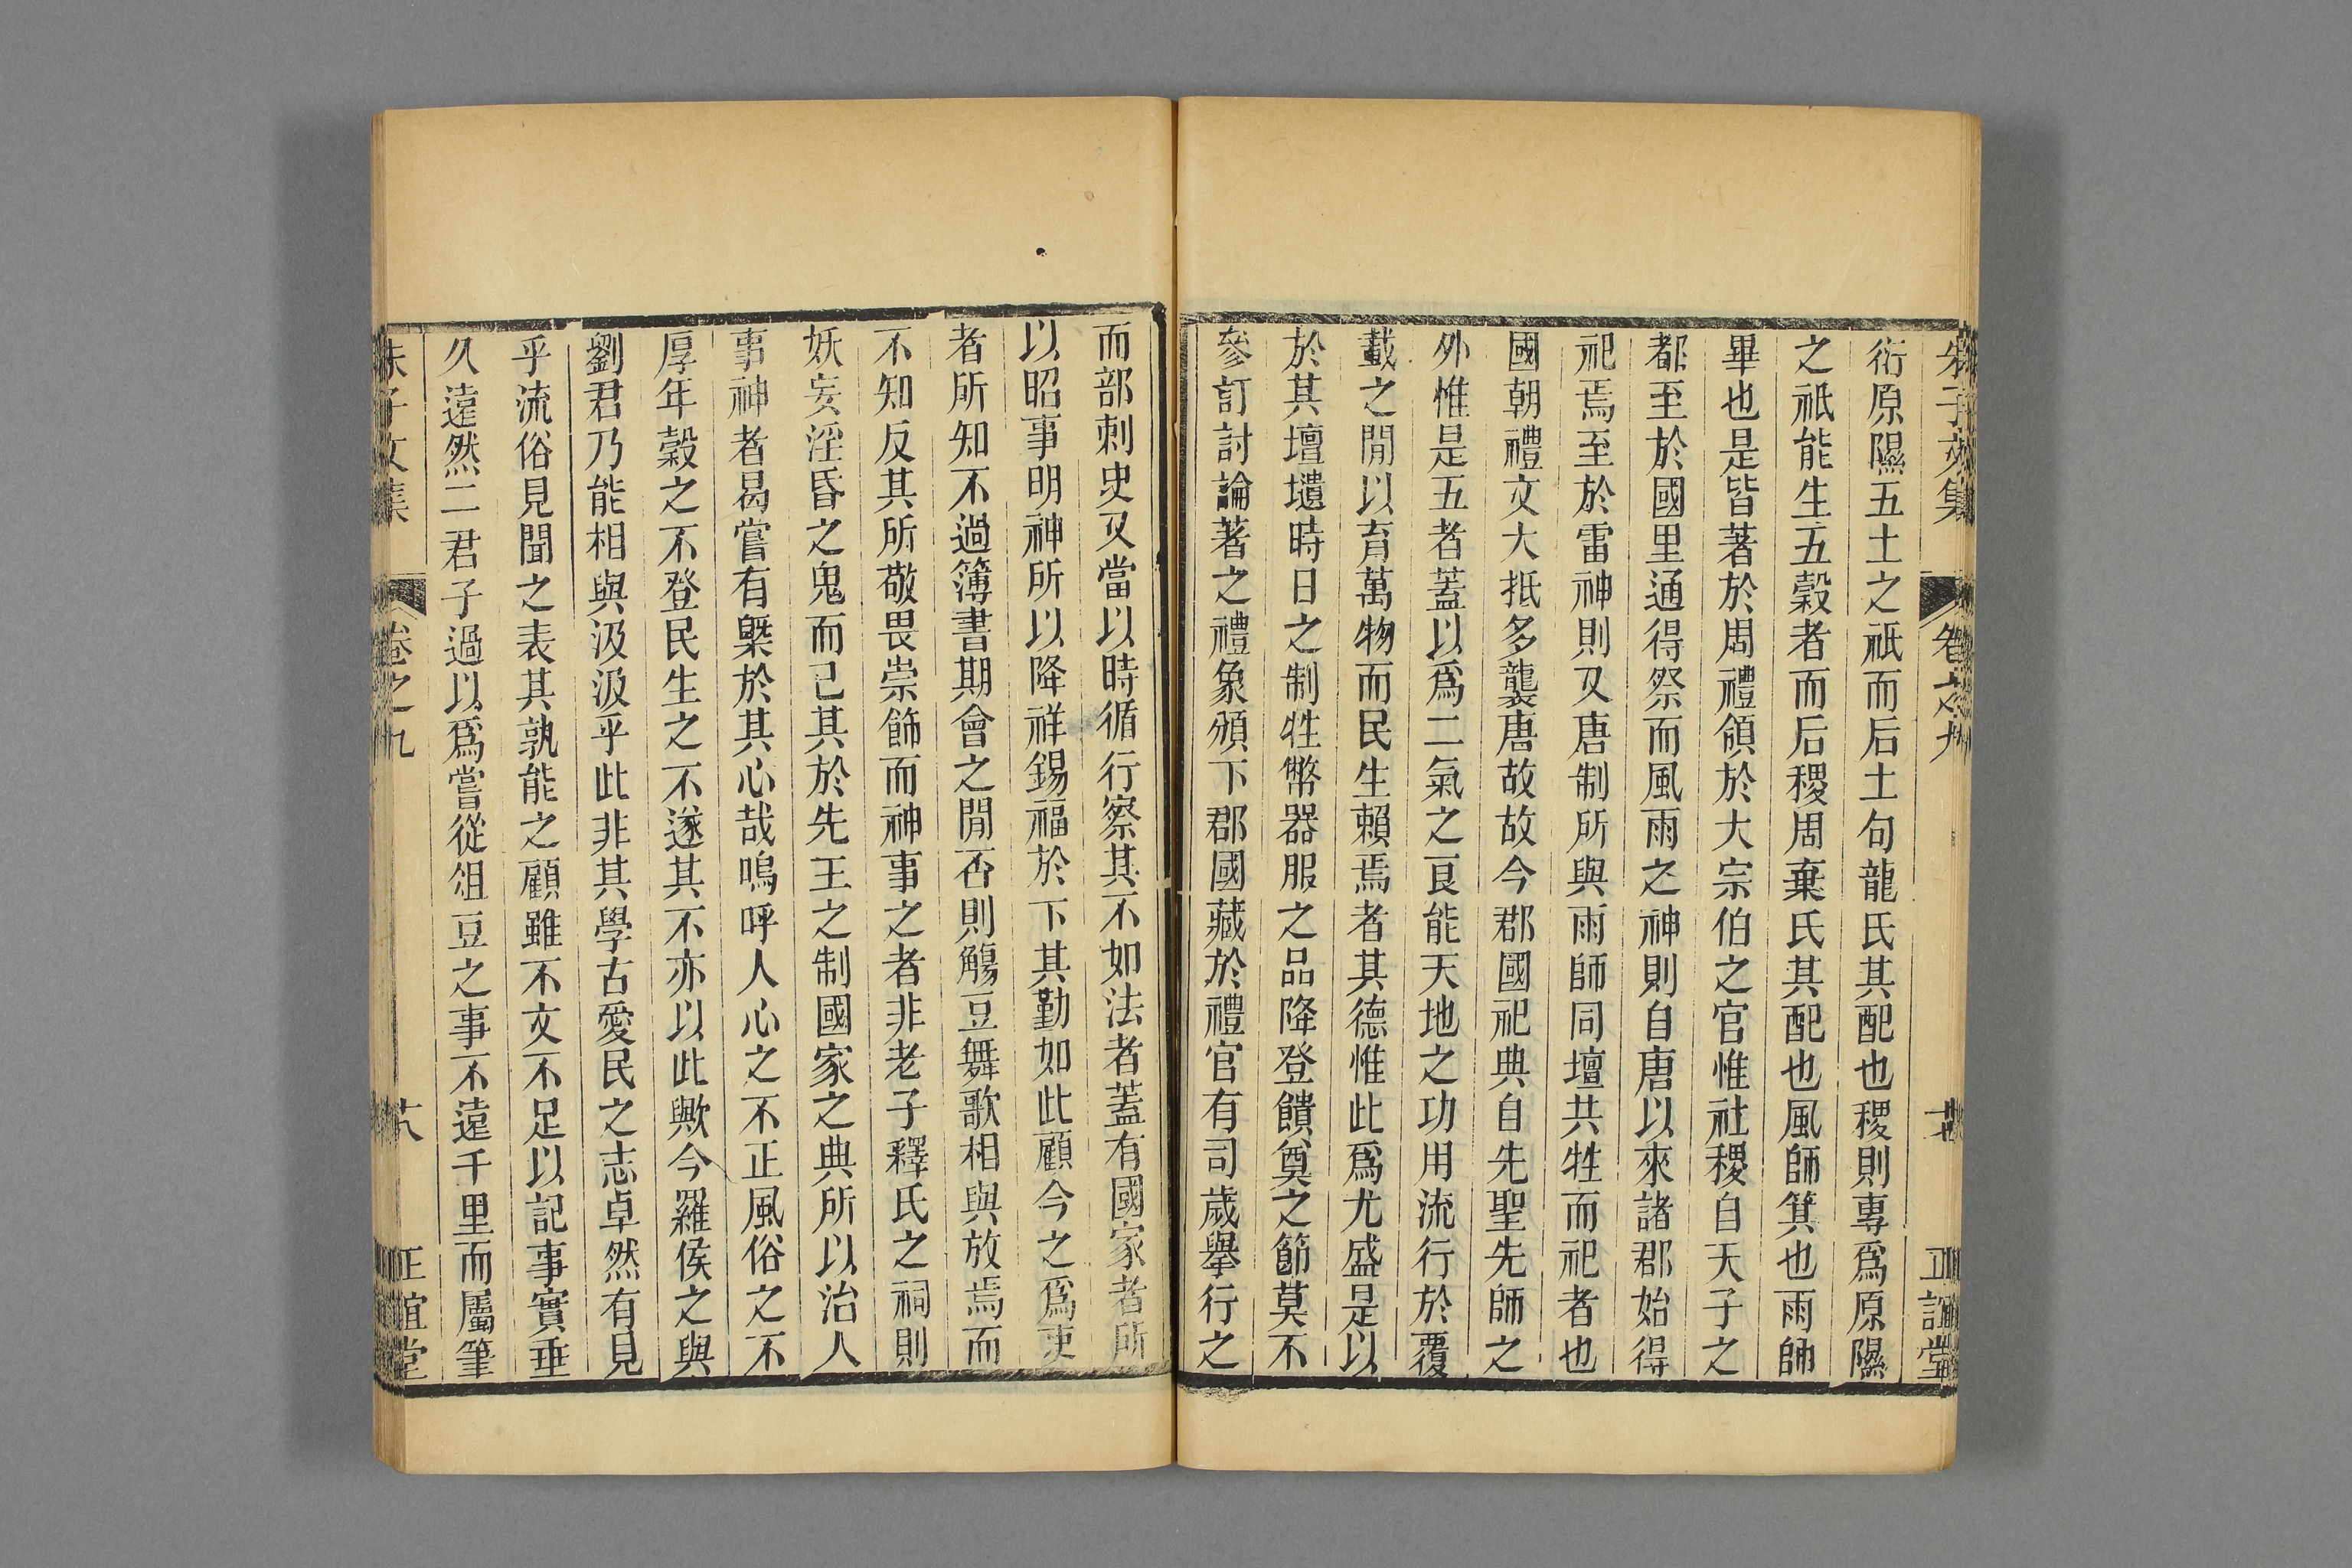 朱子文集
卷之九
正誼堂
衍原隰五土之祇而后土句龍氏其配也稷則專爲原隰
之祇能生五穀者而后稷周棄氏其配也風師箕也雨師
畢也是皆著於周禮領於大宗伯之官惟社稷自天子之
都至於國里通得祭而風雨之神則自唐以來諸郡始得
祀焉至於雷神則又唐制所與雨師同壇共牲而祀者也
國朝禮文大抵多襲唐故故今郡國祀典自先聖先師之
外惟是五者蓋以爲二氣之良能天地之功用流行於覆
載之閒以育萬物而民生賴焉者其德惟此爲尤盛是以
於其壇壝時日之制牲幣器服之品降登饋奠之節莫不
參訂討論著之禮象頒下郡國藏於禮官有司歲舉行之
而部刺史又當以時循行察其不如法者蓋有國家者所
以昭事明神所以降祥錫福於下其勤如此顧今之爲吏
者所知不過簿書期會之閒否則觴豆舞歌相與放焉而
不知反其所敬畏崇飾而神事之者非老子釋氏之祠則
妖妄淫昏之鬼而已其於先王之制國家之典所以治人
事神者曷嘗有槩於其心哉嗚呼人心之不正風俗之不
厚年穀之不登民生之不遂其不亦以此歟今羅侯之與
劉君乃能相與汲汲乎此非其學古愛民之志卓然有見
乎流俗見聞之表其孰能之顧雖不文不足以記事實垂
久遠然二君子過以爲嘗從俎豆之事不遠千里而屬筆
朱子文集
卷之九
六
正誼堂